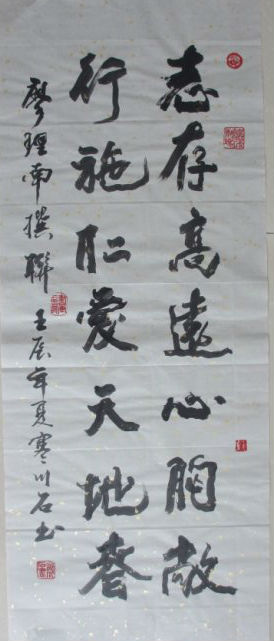 志存高遠心胸敞
行施仁愛天地春
廖理南撰聯 壬辰年夏寒川石书